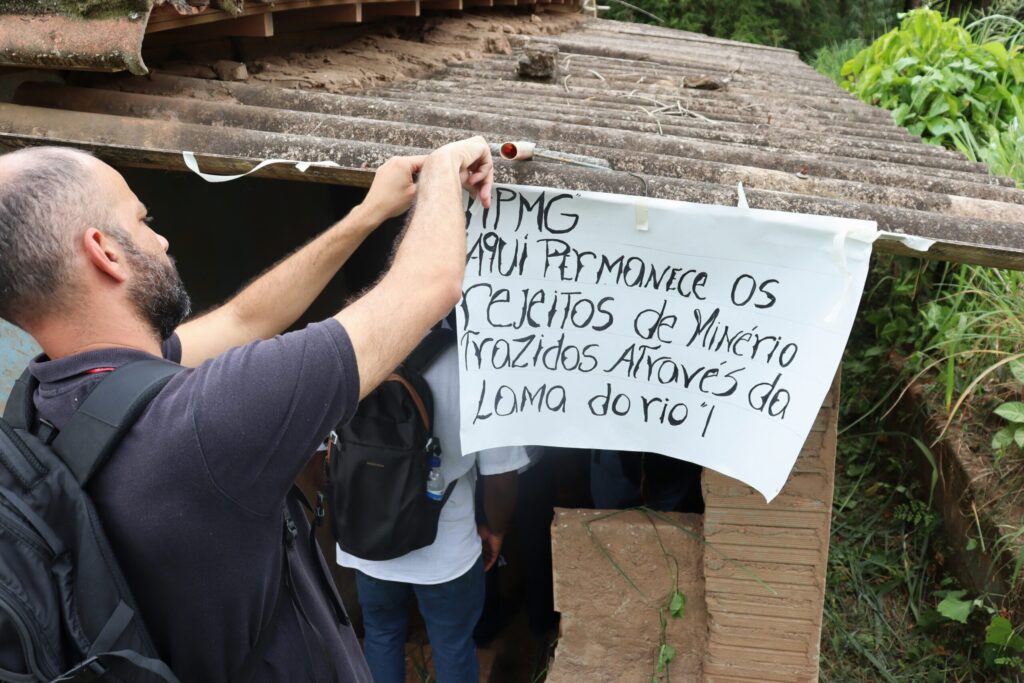 MPMG"
AQUI PERMANECE OS
rEJEITOS de MINÉrio
TrAZIDOS ATrAVÉS da
LAMA do rio"!